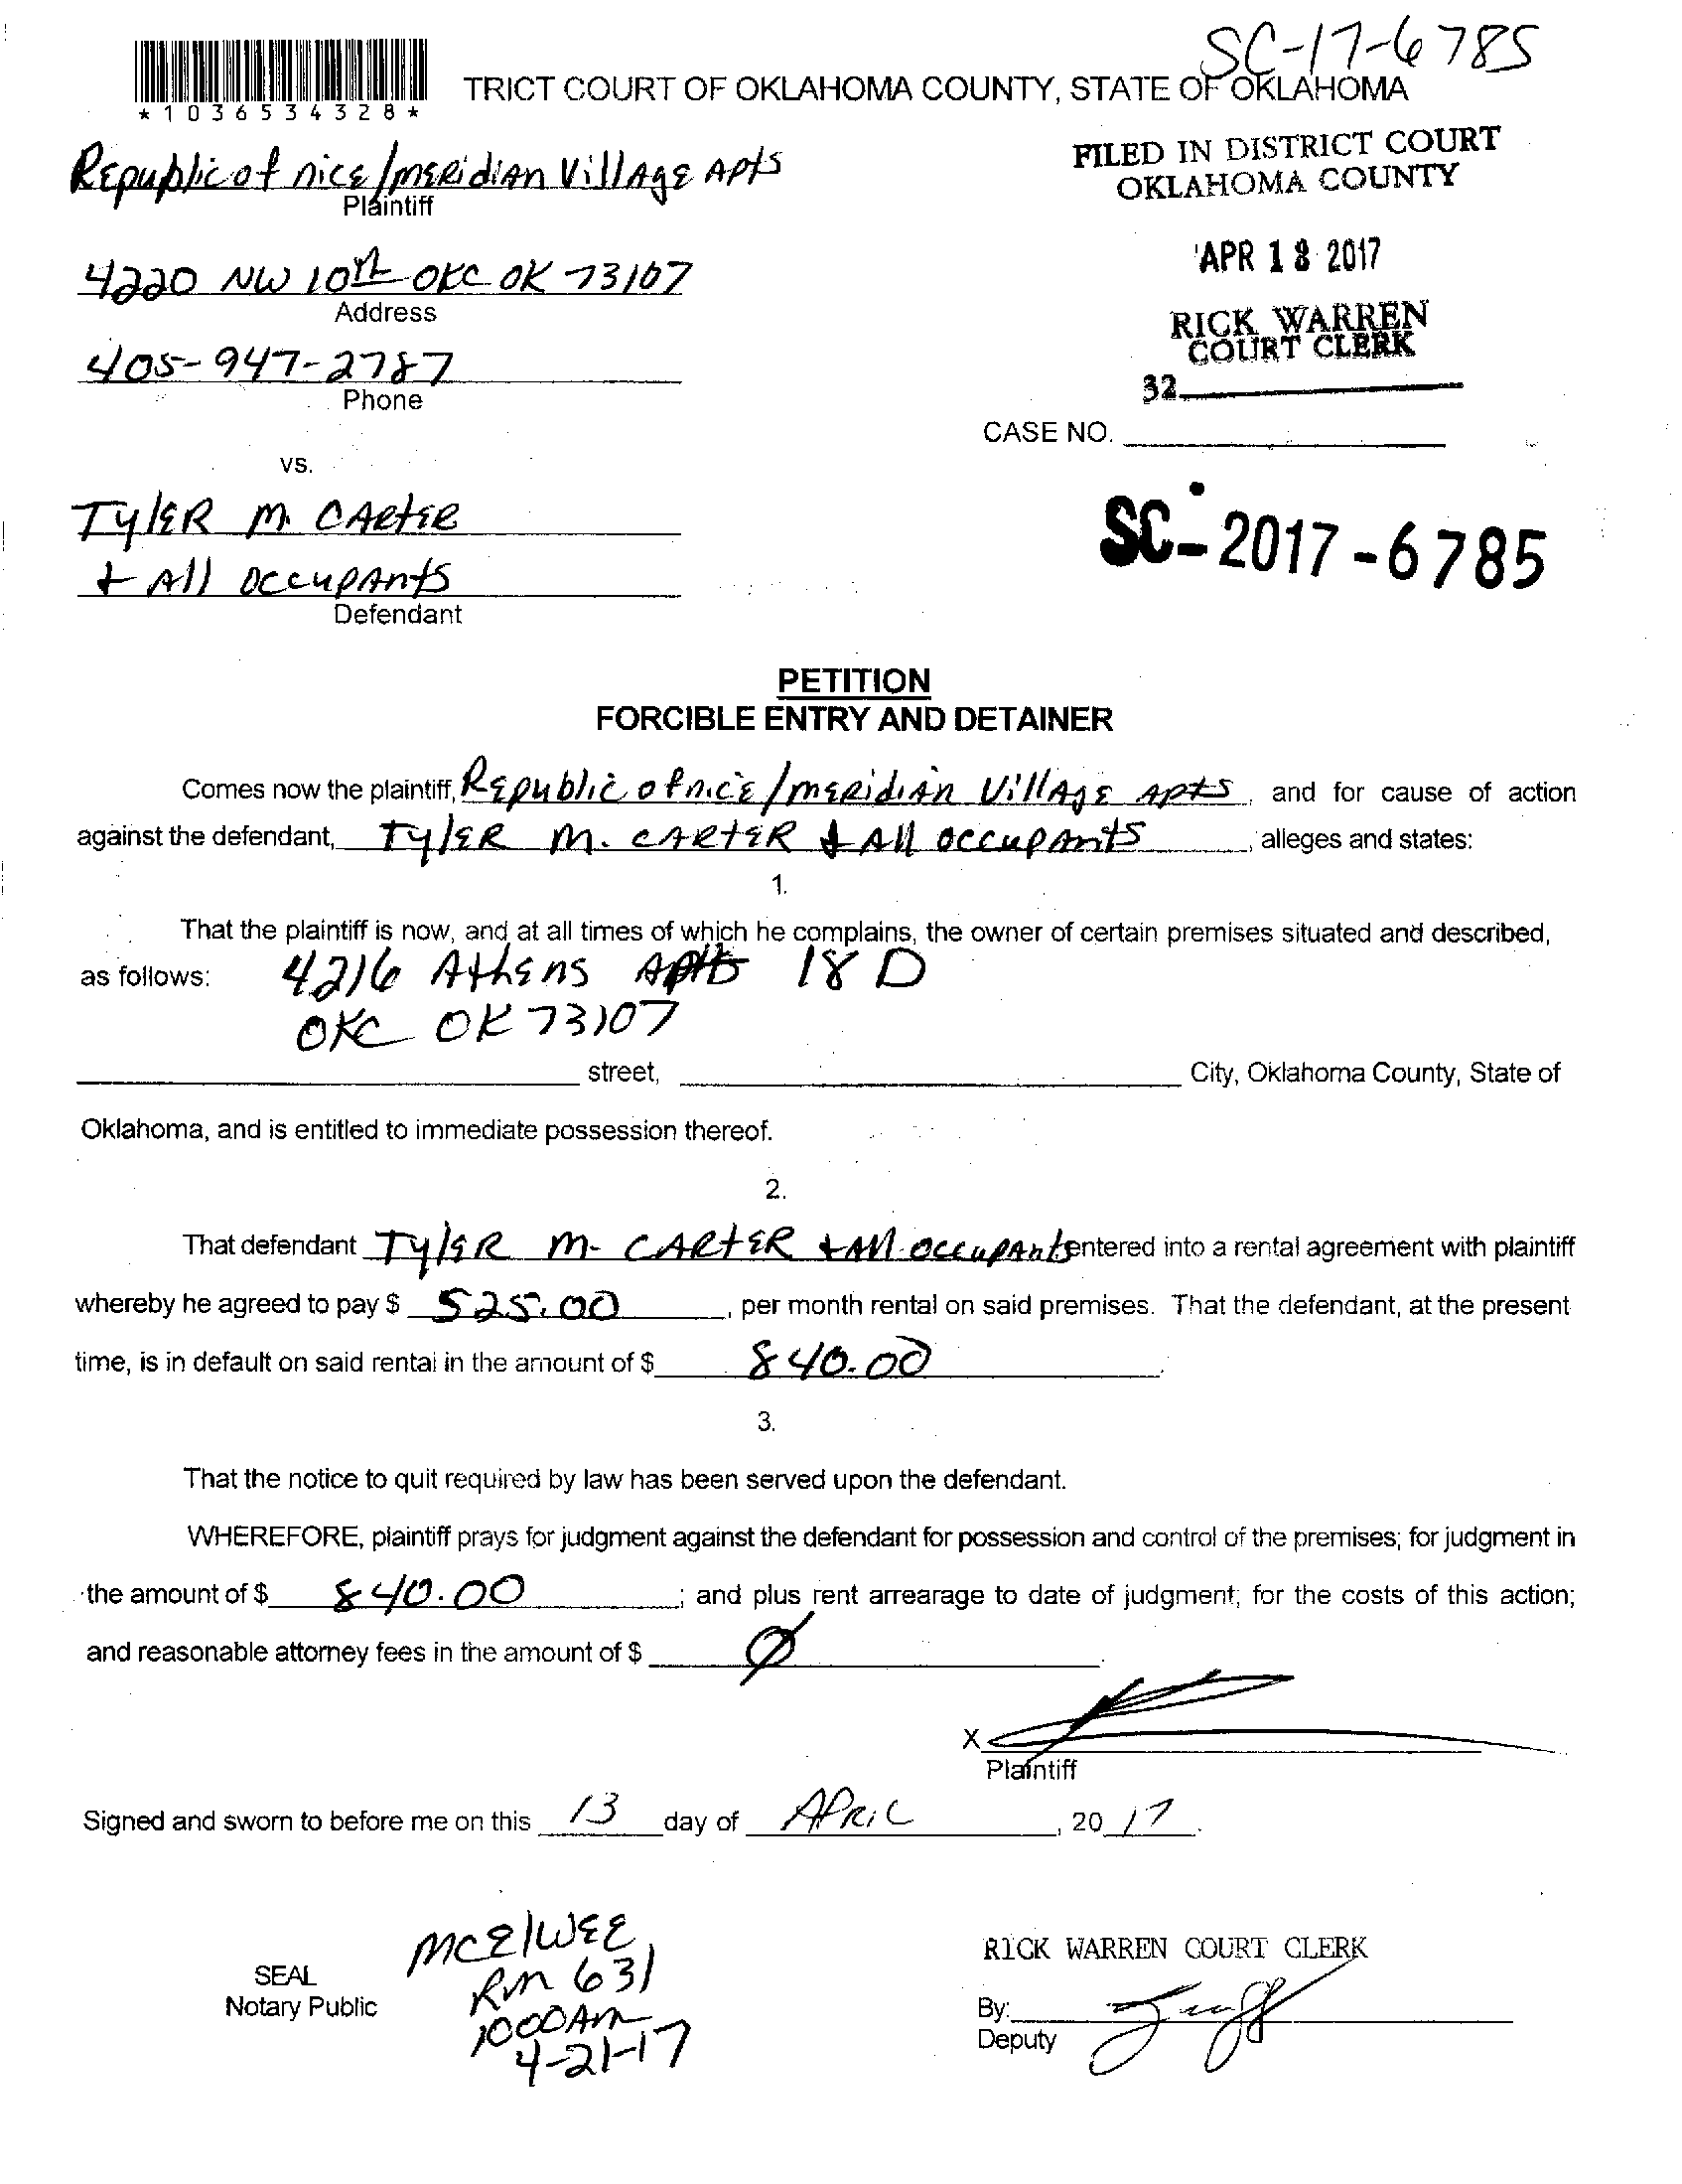 SC-17-6785
*1036534328*
TRICT COURT OF OKLAHOMA COUNTY, STATE OF OKLAHOMA
Republic of nice/meridian Village Apts
Plaintiff
FILED IN DISTRICT COURT
OKLAHOMA COUNTY
4220 NW 10th OKC OK 73107
Address
APR 13 2017
405-947-2787
Phone
RICK WARREN
COURT CLERK
32
CASE NO.
vs.
Tyler M. Carter
+ All occupants
Defendant
SC-2017-6785
PETITION
FORCIBLE ENTRY AND DETAINER
Comes now the plaintiff, Republic of nice/meridian Village Apts, and for cause of action
against the defendant, Tyler M. Carter + All occupants, alleges and states:
1.
That the plaintiff is now, and at all times of which he complains, the owner of certain premises situated and described,
as follows: 4216 Athens Apt 18 D
OKC OK 73107
street, City, Oklahoma County, State of
Oklahoma, and is entitled to immediate possession thereof.
2.
That defendant Tyler M. Carter + All occupants entered into a rental agreement with plaintiff
whereby he agreed to pay $ 525.00, per month rental on said premises. That the defendant, at the present
time, is in default on said rental in the amount of $ 840.00.
3.
That the notice to quit required by law has been served upon the defendant.
WHEREFORE, plaintiff prays for judgment against the defendant for possession and control of the premises; for judgment in
the amount of $ 840.00; and plus rent arrearage to date of judgment; for the costs of this action;
and reasonable attorney fees in the amount of $ Ø.
X
Plaintiff
Signed and sworn to before me on this 13 day of April, 2017.
McElwee
Rm 631
1000 Am
4-21-17
SEAL
Notary Public
RICK WARREN COURT CLERK
By:
Deputy